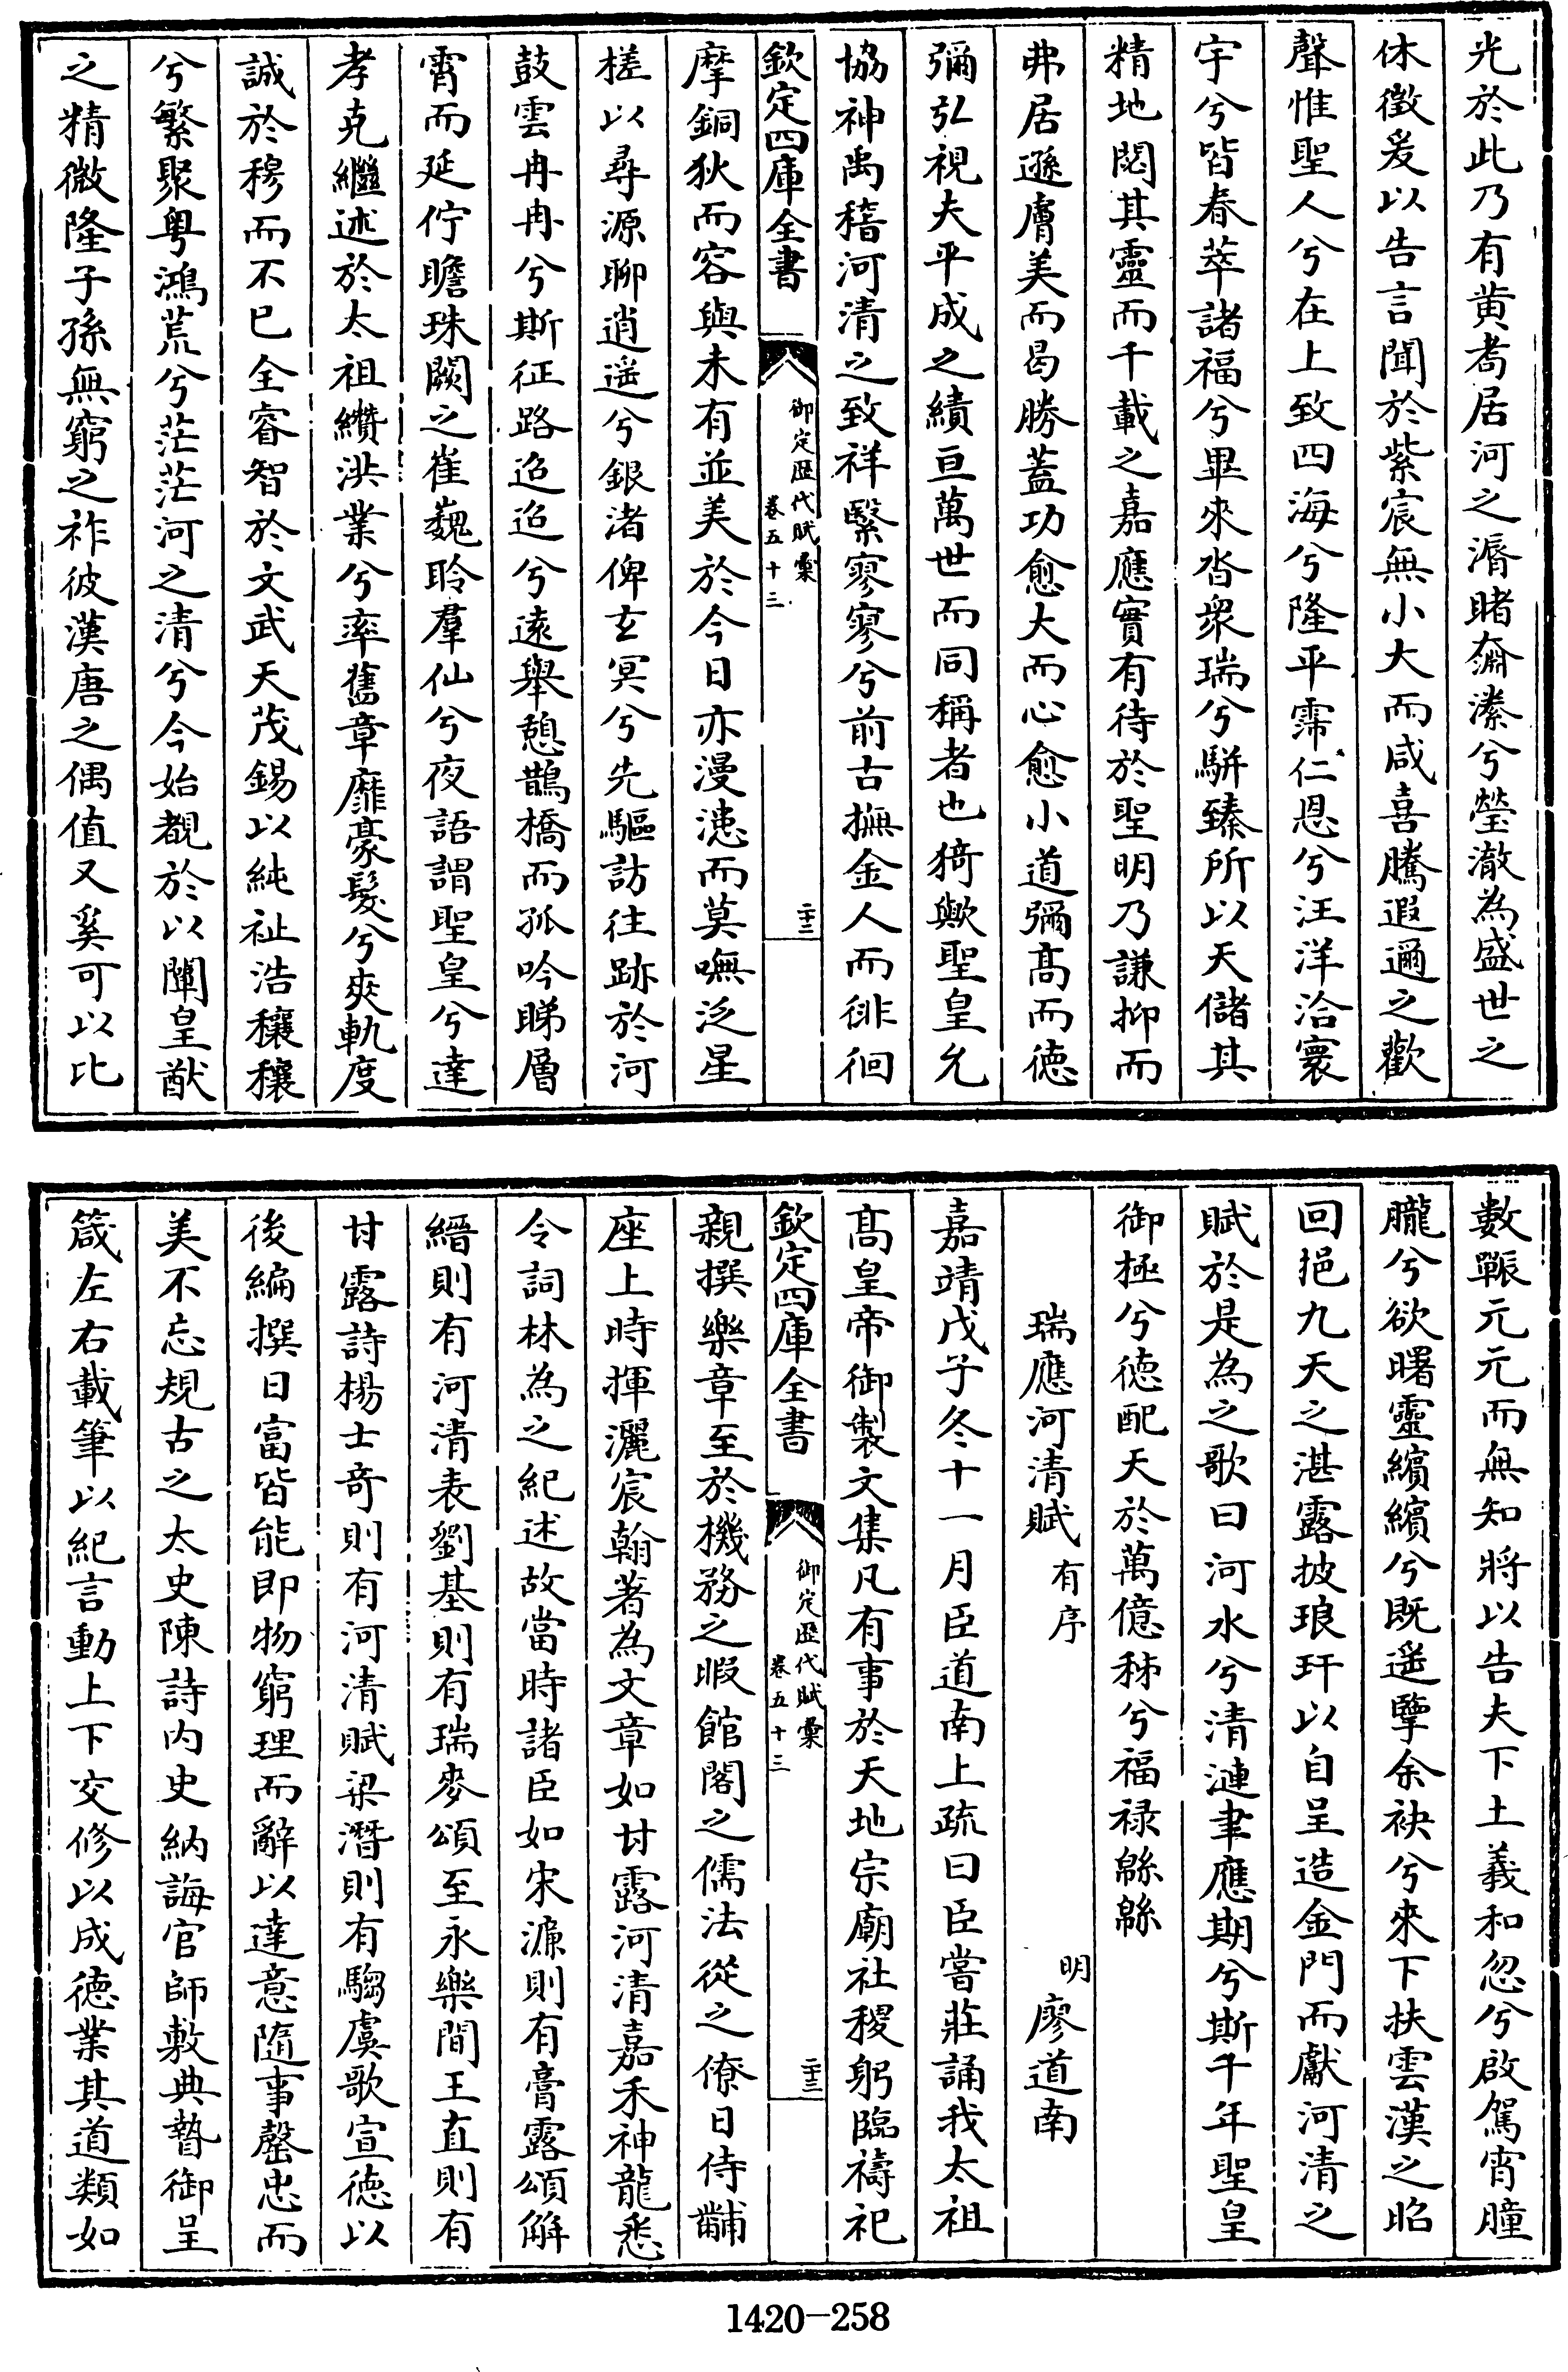 光於此乃有黄耉居河之漘睹奫潫兮瑩澈為盛世之
休徴爰以告言聞於紫宸無小大而咸喜騰遐邇之歡
聲惟聖人兮在上致四海兮隆平霈仁恩兮汪洋洽寰
宇兮皆春萃諸福兮畢來沓衆瑞兮駢臻所以天儲其
精地閟其靈而千載之嘉應實有待於聖明乃謙抑而
弗居遜膚美而曷勝蓋功愈大而心愈小道彌髙而徳
彌弘視夫平成之績亘萬世而同稱者也猗歟聖皇允
協神禹稽河清之致祥繄寥寥兮前古撫金人而徘徊
欽定四庫全書
御定歴代賦彙
卷五十三
二十三
摩銅狄而容與未有並美於今日亦漫漶而莫嘸泛星
槎以尋源聊逍遥兮銀渚俾玄冥兮先驅訪往跡於河
鼓雲冉冉兮斯征路迢迢兮逺舉憩鵲橋而孤吟睇層
霄而延佇瞻珠闕之崔巍聆羣仙兮夜語謂聖皇兮達
孝克繼述於太祖纘洪業兮率舊章靡豪髮兮爽軌度
誠於穆而不已全睿智於文武天茂錫以純祉浩穰穰
兮繁聚粤鴻荒兮茫茫河之清兮今始覩於以闡皇猷
之精微隆子孫無窮之祚彼漢唐之偶值又奚可以比
數囅元元而無知將以告夫下土義和忽兮啟駕宵朣
朧兮欲曙靈繽繽兮既遥擥余袂兮來下扶雲漢之昭
回挹九天之湛露披琅玕以自呈造金門而獻河清之
賦於是為之歌曰河水兮清漣聿應期兮斯千年聖皇
御極兮徳配天於萬億秭兮福禄緜緜
瑞應河清賦 有序 明 廖道南
嘉靖戊子冬十一月臣道南上疏曰臣嘗莊誦我太祖
髙皇帝御製文集凡有事於天地宗廟社稷躬臨禱祀
欽定四庫全書
御定歴代賦彙
卷五十三
二十三
親撰樂章至於機務之暇館閣之儒法從之僚日侍黼
座上時揮灑宸翰著為文章如甘露河清嘉禾神龍悉
令詞林為之紀述故當時諸臣如宋濂則有膏露頌解
縉則有河清表劉基則有瑞麥頌至永樂間王直則有
甘露詩楊士竒則有河清賦梁潛則有騶虞歌宣徳以
後編撰日富皆能即物窮理而辭以達意隨事罄忠而
美不忘規古之太史陳詩内史納誨官師敷典暬御呈
箴左右載筆以紀言動上下交修以成徳業其道類如
1420-258